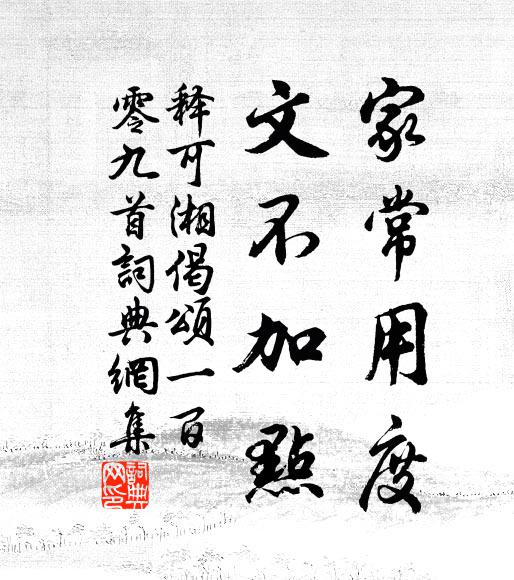 家常用度
文不加點
释可湘偈頌一百
零九首詞典網集
詞典网印